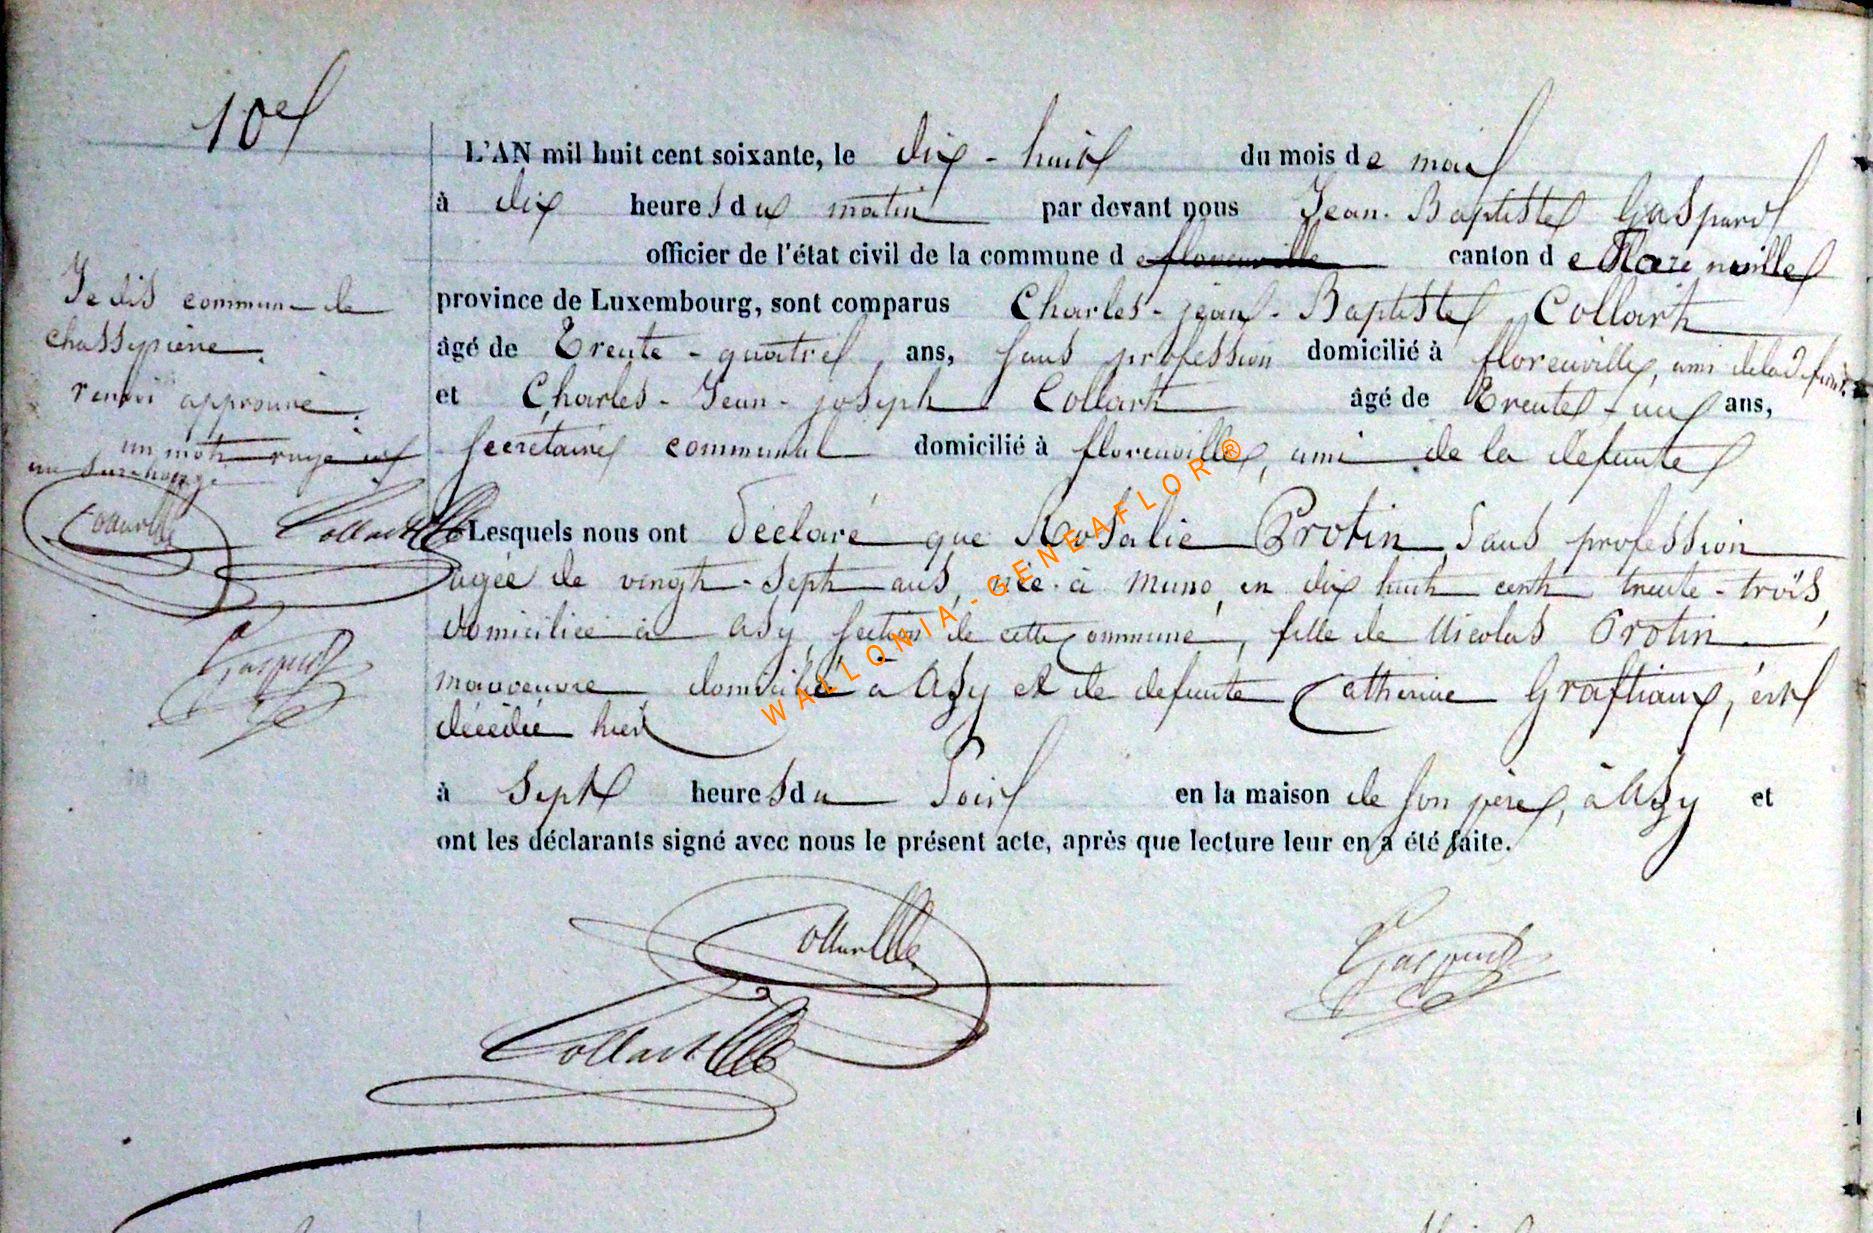 10e
L'AN mil huit cent soixante, le dix-huit du mois de mai
à dix heures du matin par devant nous Jean-Baptiste Gaspard
officier de l'état civil de la commune de florenville canton de Florenville
province de Luxembourg, sont comparus Charles-jean-Baptiste Collart
âgé de Trente-quatre ans, sans profession domicilié à florenville, ami de la defunte
et Charles-Jean-joseph Collart âgé de Trente-un ans,
secrétaire communal domicilié à florenville, ami de la defunte
Je dis commune de
chassepierre.
renvoi approuvé.
un mot rayé
un surchargé
Collart
Gaspard
Lesquels nous ont Déclaré que Rosalie Protin, sans profession
agée de vingt-sept ans, née à muno, en dix huit cent trente-trois,
domiciliée à azy, section de cette commune, fille de Nicolas Protin
manoeuvre domicilié à Azy et de defunte Catherine Graftiaux, est
décédée hier
à sept heures du soir en la maison de son père, à Azy et
ont les déclarants signé avec nous le présent acte, après que lecture leur en a été faite.
Collart
Gaspard
Collart
WALLONIA-GENEAFLOR®